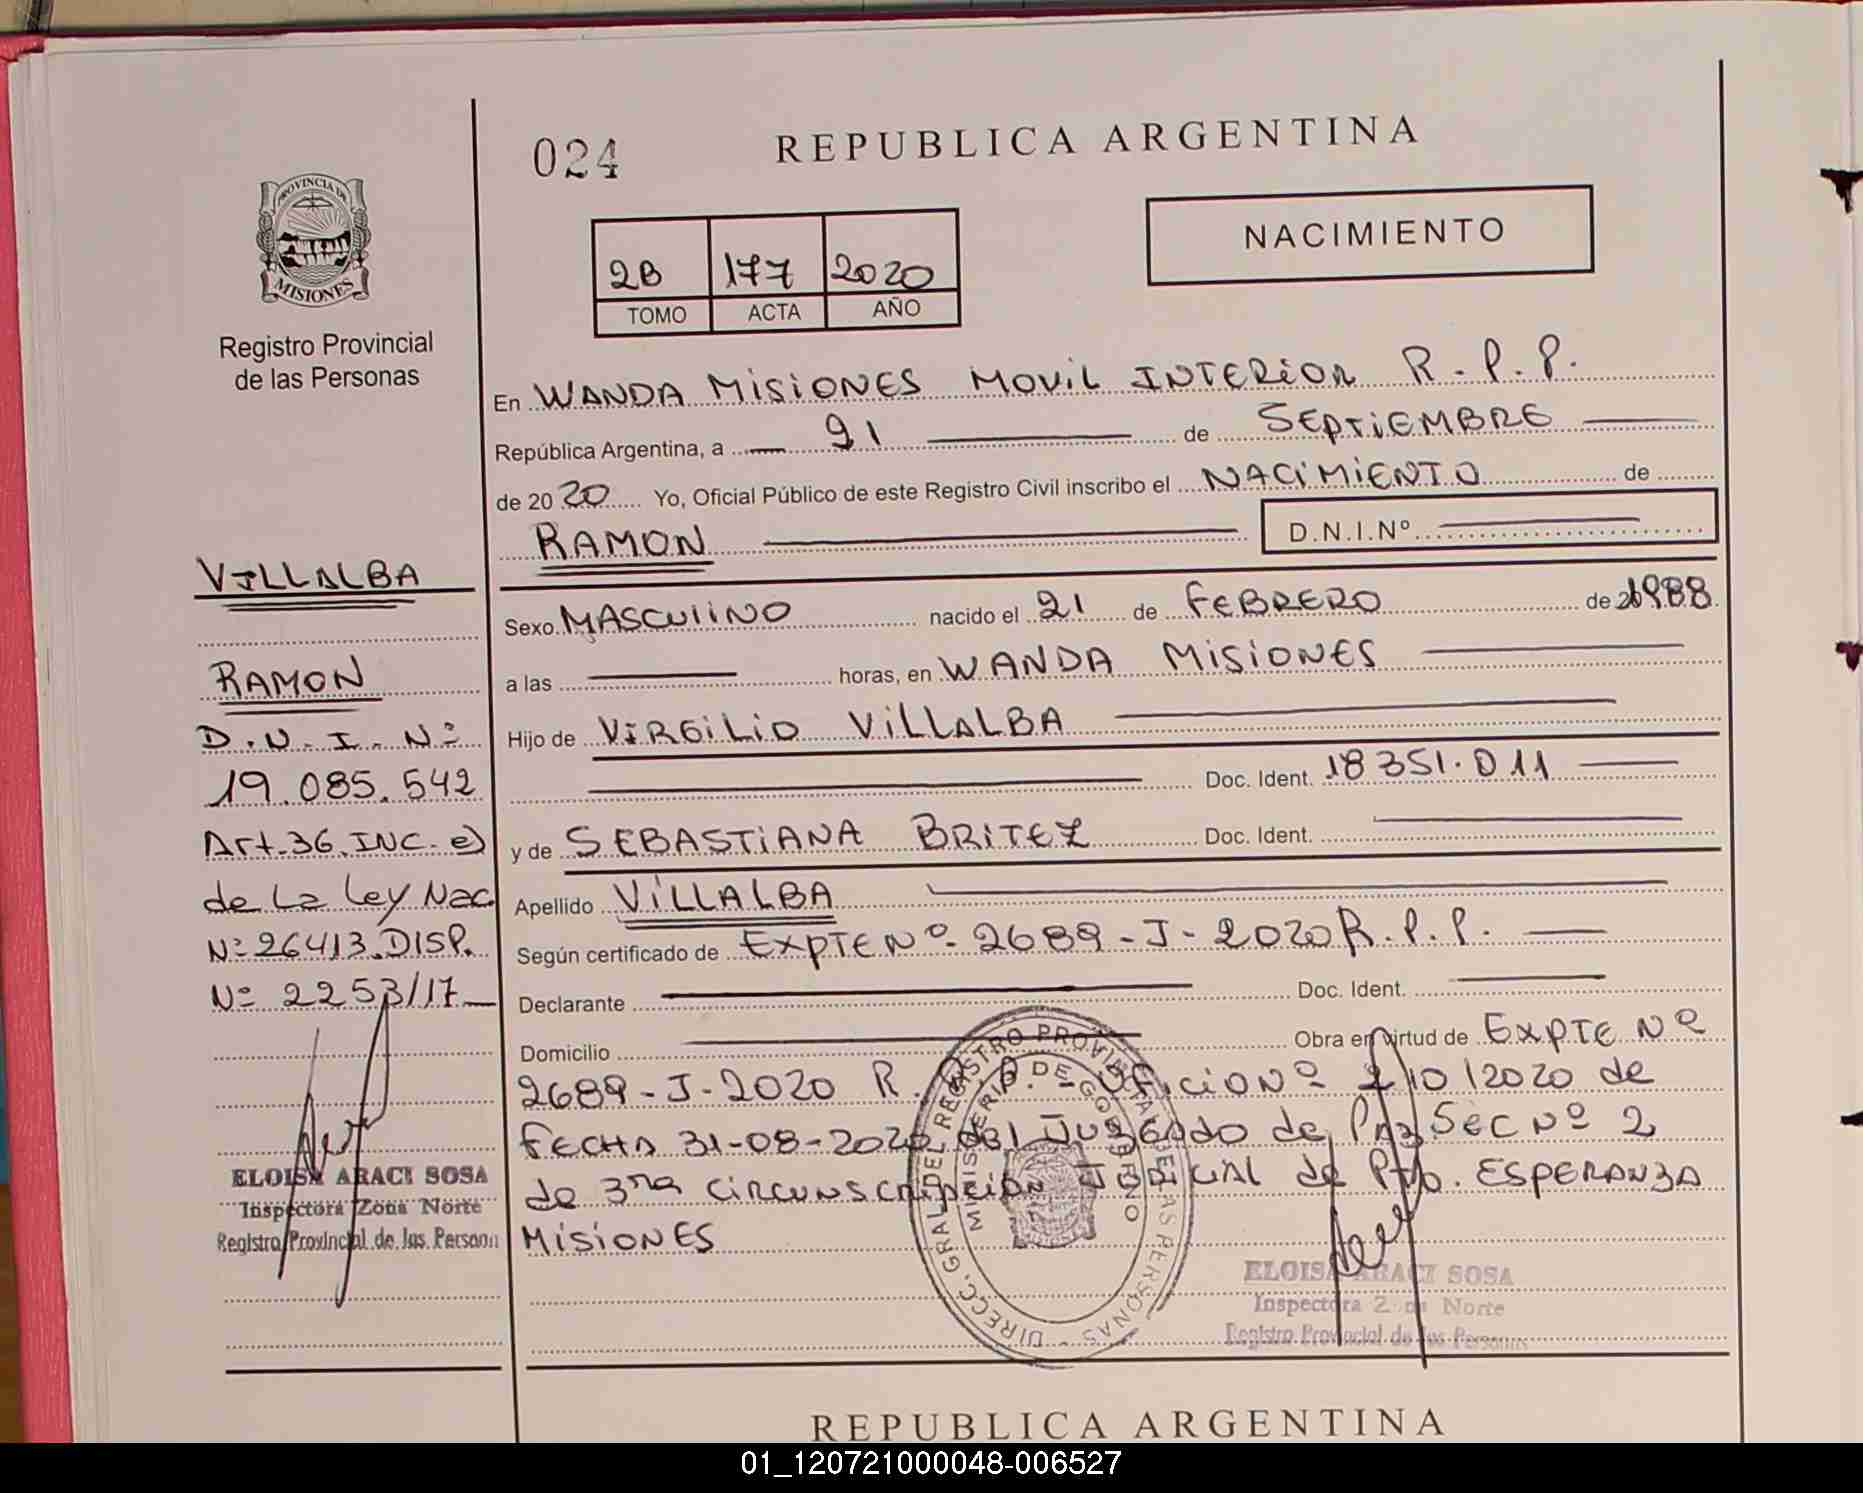 024
REPUBLICA ARGENTINA
NACIMIENTO
2B 177 2020
TOMO ACTA AÑO
PROVINCIA DE
MISIONES
Registro Provincial
de las Personas
En WANDA MISIONES MOVIL INTERIOR R.P.P.
República Argentina, a 21 de SEPTIEMBRE
de 2020 Yo, Oficial Público de este Registro Civil inscribo el NACIMIENTO de
RAMON D.N.I.Nº
Sexo MASCULINO nacido el 21 de FEBRERO de 1988
a las horas, en WANDA MISIONES
Hijo de VIRGILIO VILLALBA
Doc. Ident. 18351.011
y de SEBASTIANA BRITEZ Doc. Ident.
Apellido VILLALBA
Según certificado de EXPTE Nº 2689-J-2020 R.P.P.
Declarante Doc. Ident.
Domicilio Obra en virtud de EXPTE Nº
2689-J-2020 R.P.P. - OFICIO Nº 210/2020 de
FECHA 31-08-2020 del JUZGADO de Paz SEC Nº 2
de 3ra CIRCUNSCRIPCION JUDICIAL de Pto. ESPERANZA
MISIONES
VILLALBA
RAMON
D.N.I. Nº
19.085.542
Art.36.INC.e)
de La Ley Nac
Nº26413.DISP.
Nº 2253/17
ELOISA ARACI SOSA
Inspectora Zona Norte
Registro Provincial de las Person
DIRECC. GRAL. DEL REGISTRO PROVINCIAL DE LAS PERSONAS
MINISTERIO DE GOBIERNO
ELOISA ARACI SOSA
Inspectora Zona Norte
Registro Provincial de las Personas
REPUBLICA ARGENTINA
01_120721000048-006527